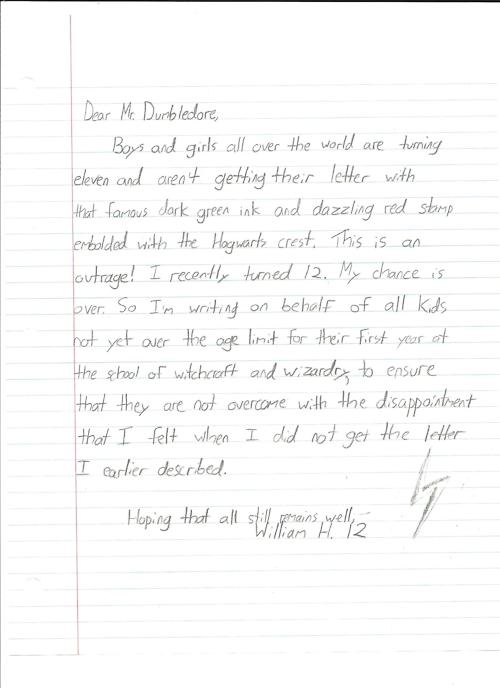 Dear Mr. Dumbledore,
Boys and girls all over the world are turning
eleven and aren't getting their letter with
that famous dark green ink and dazzling red stamp
embolded with the Hogwarts crest. This is an
outrage! I recently turned 12. My chance is
over. So I'm writing on behalf of all kids
not yet over the age limit for their first year at
the school of witchcraft and wizardry, to ensure
that they are not overcome with the disappointment
that I felt when I did not get the letter
I earlier described.
Hoping that all still remains well,
William H. 12